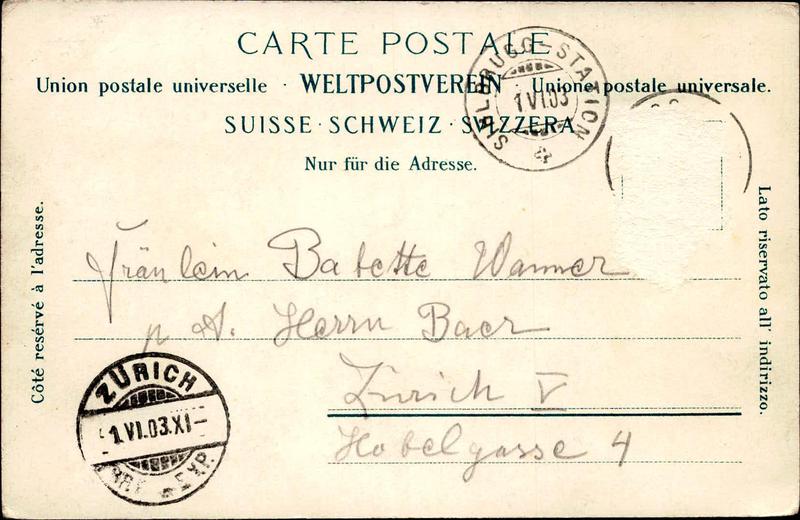 CARTE POSTALE
Union postale universelle · WELTPOSTVEREIN · Unione postale universale.
SUISSE · SCHWEIZ · SVIZZERA
Nur für die Adresse.
SIHLBRUGG-STATION
1 VI 03
Côté resérvé à l'adresse.
Lato riservato all' indirizzo.
Fräulein Babette Wanner
p. A. Herrn Baer
Zürich V
Hobelgasse 4
ZÜRICH
1.VI.03.XI-
EXP.